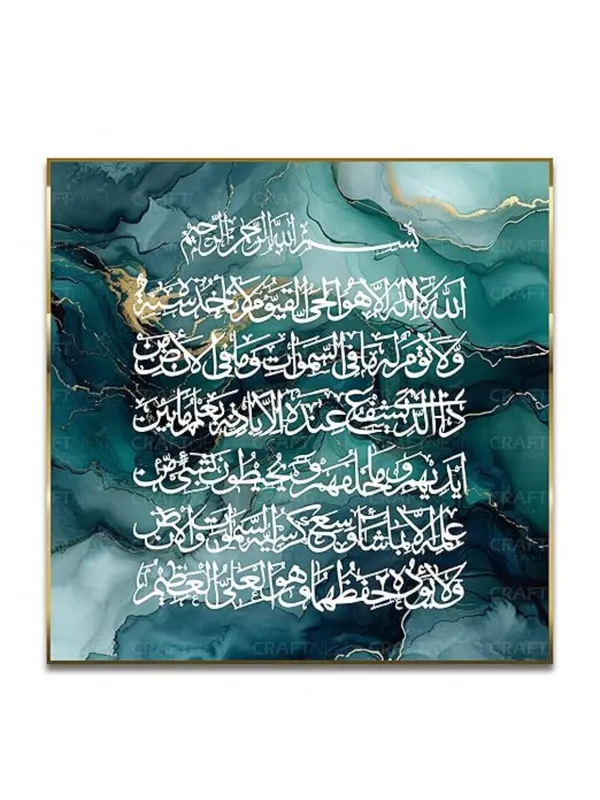 بسم الله الرحمن الرحيم
الله لا اله الا هو الحي القيوم لا تأخذه سنة
ولا نوم له ما في السموات وما في الارض من
ذا الذي يشفع عنده الا باذنه يعلم ما بين
ايديهم وما خلفهم ولا يحيطون بشيء من
علمه الا بما شاء وسع كرسيه السموات والارض
ولا يؤده حفظهما وهو العلي العظيم